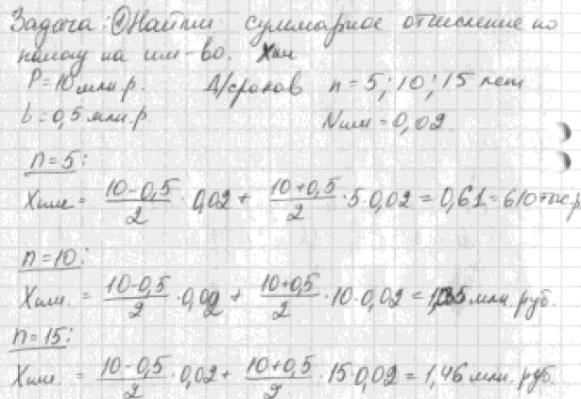 Задача: ① Найти суммарное отчисление по
налогу на им-во. Xим
P = 10 млн р. Д/сроков n = 5; 10; 15 лет
L = 0,5 млн. р. Nим = 0,02.
n = 5:
Xим = (10-0,5)/2 · 0,02 + (10+0,5)/2 · 5 · 0,02 = 0,61 = 610 тыс. р
n = 10:
Xим. = (10-0,5)/2 · 0,02 + (10+0,5)/2 · 10 · 0,02 = млн. руб.
n = 15:
Xим. = (10-0,5)/2 · 0,02 + (10+0,5)/2 · 15 · 0,02 = 1,46 млн. руб.